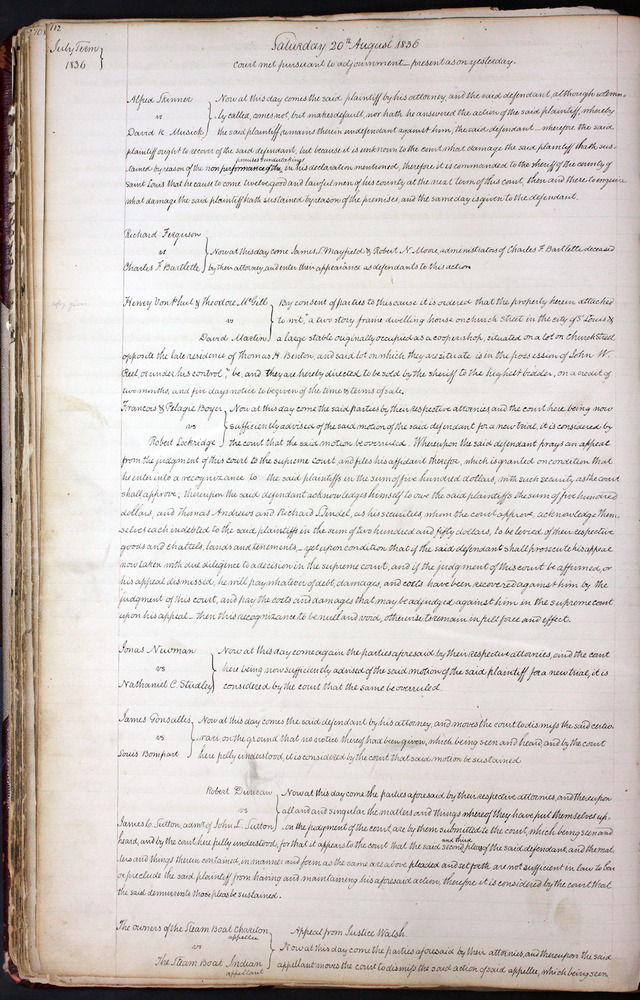 112
July Term
1836
Saturday 20th August 1836
Court met pursuant to adjournment present as on yesterday.
Alfred Skinner
vs
David K. Musick
Now at this day comes the said plaintiff by his attorney, and the said defendant, although solemn-
ly called, comes not, but makes default, nor hath he answered the action of the said plaintiff, whereby
the said plaintiff remains therein undefended against him, the said defendant wherefore the said
plaintiff ought to recover of the said defendant, but because it is unknown to the court what damage the said plaintiff hath sus-
tained by reason of the non performance of the promises & undertakings in his declaration mentioned, therefore it is commanded to the sheriff of the county of
Saint Louis that he cause to come twelve good and lawful men of his county at the next term of this court, then and there to enquire
what damage the said plaintiff hath sustained by reason of the premises, and the same day is given to the defendant.
Richard Ferguson
vs
Charles F. Bartlette
Now at this day come James S. Mayfield & Robert N. Moore, administrators of Charles F. Bartlette deceased
by their attorney and enter their appearance as defendants to this action
Henry Von Phul & Theodore McGill
vs
David Martin
By consent of parties to this cause it is ordered that the property herein attached
to wit, "a two story frame dwelling house on church street in the city of St Louis &
a large stable originally occupied as a cooper shop, situated on a lot on Church Street
opposite the late residence of Thomas H. Benton, and said lot on which they are situate is in the possession of John W.
Reel, or under his control," be, and they are hereby directed to be sold by the sheriff to the highest bidder, on a credit of
two months, and five days notice to be given of the time & terms of sale.
Francois & Pelagie Boyer
vs
Robert Lockridge
Now at this day come the said parties by their respective attornies and the court here being now
sufficiently advised of the said motion of the said defendant for a new trial, it is considered by
the court that the said motion be overruled. Whereupon the said defendant prays an appeal
from the judgment of this court to the supreme court, and files his affidavit therefor, which is granted on condition that
he enter into a recognizance to the said plaintiffs in the sum of five hundred dollars, with such security as the court
shall approve; thereupon the said defendant acknowledges himself to owe the said plaintiffs the sum of five hundred
dollars, and Thomas Andrews and Richard Lindel, as his securities whom the court approve, acknowledge them
selves each indebted to the said plaintiffs in the sum of two hundred and fifty dollars, to be levied of their respective
goods and chattels, lands and tenements, yet upon condition that if the said defendant shall prosecute his appeal
now taken with due diligence to a decision in the supreme court, and if the judgment of this court be affirmed, or
his appeal dismissed, he will pay whatever of debt, damages, and costs have been recovered against him by the
judgment of this court, and pay the costs and damages that may be adjudged against him in the supreme court
upon his appeal - then this recognizance to be null and void, otherwise to remain in full force and effect.
Jonas Newman
vs
Nathaniel C. Studley
Now at this day come again the parties aforesaid by their respective attornies, and the court
here being now sufficiently advised of the said motion of the said plaintiff for a new trial, it is
considered by the court that the same be overruled
James Gonsalles
vs
Louis Bompart
Now at this day comes the said defendant by his attorney, and moves the court to dismiss the said certio-
rari on the ground that no notice thereof had been given, which being seen and heard, and by the court
here fully understood, it is considered by the court that said motion be sustained
Robert Duncan
vs
James C. Sutton, admr. of John L. Sutton
Now at this day come the parties aforesaid by their respective attornies, and thereupon
all and singular the matters and things whereof they have put themselves up-
on the judgment of the court, are by them submitted to the court, which being seen and
heard, and by the court here fully understood, for that it appears to the court that the said second and third pleas of the said defendant, and the mat
ters and things therein contained, in manner and form as the same are above pleaded and set forth, are not sufficient in law to bar
or preclude the said plaintiff from having and maintaining his aforesaid action, therefore it is considered by the court that
the said demurrer to those pleas be sustained.
The owners of the Steam Boat Chariton
appellee
vs
The Steam Boat Indian
appellant
Appeal from Justice Walsh.
Now at this day come the parties aforesaid by their attornies, and thereupon the said
appellant moves the court to dismiss the said action of said appellee, which being seen